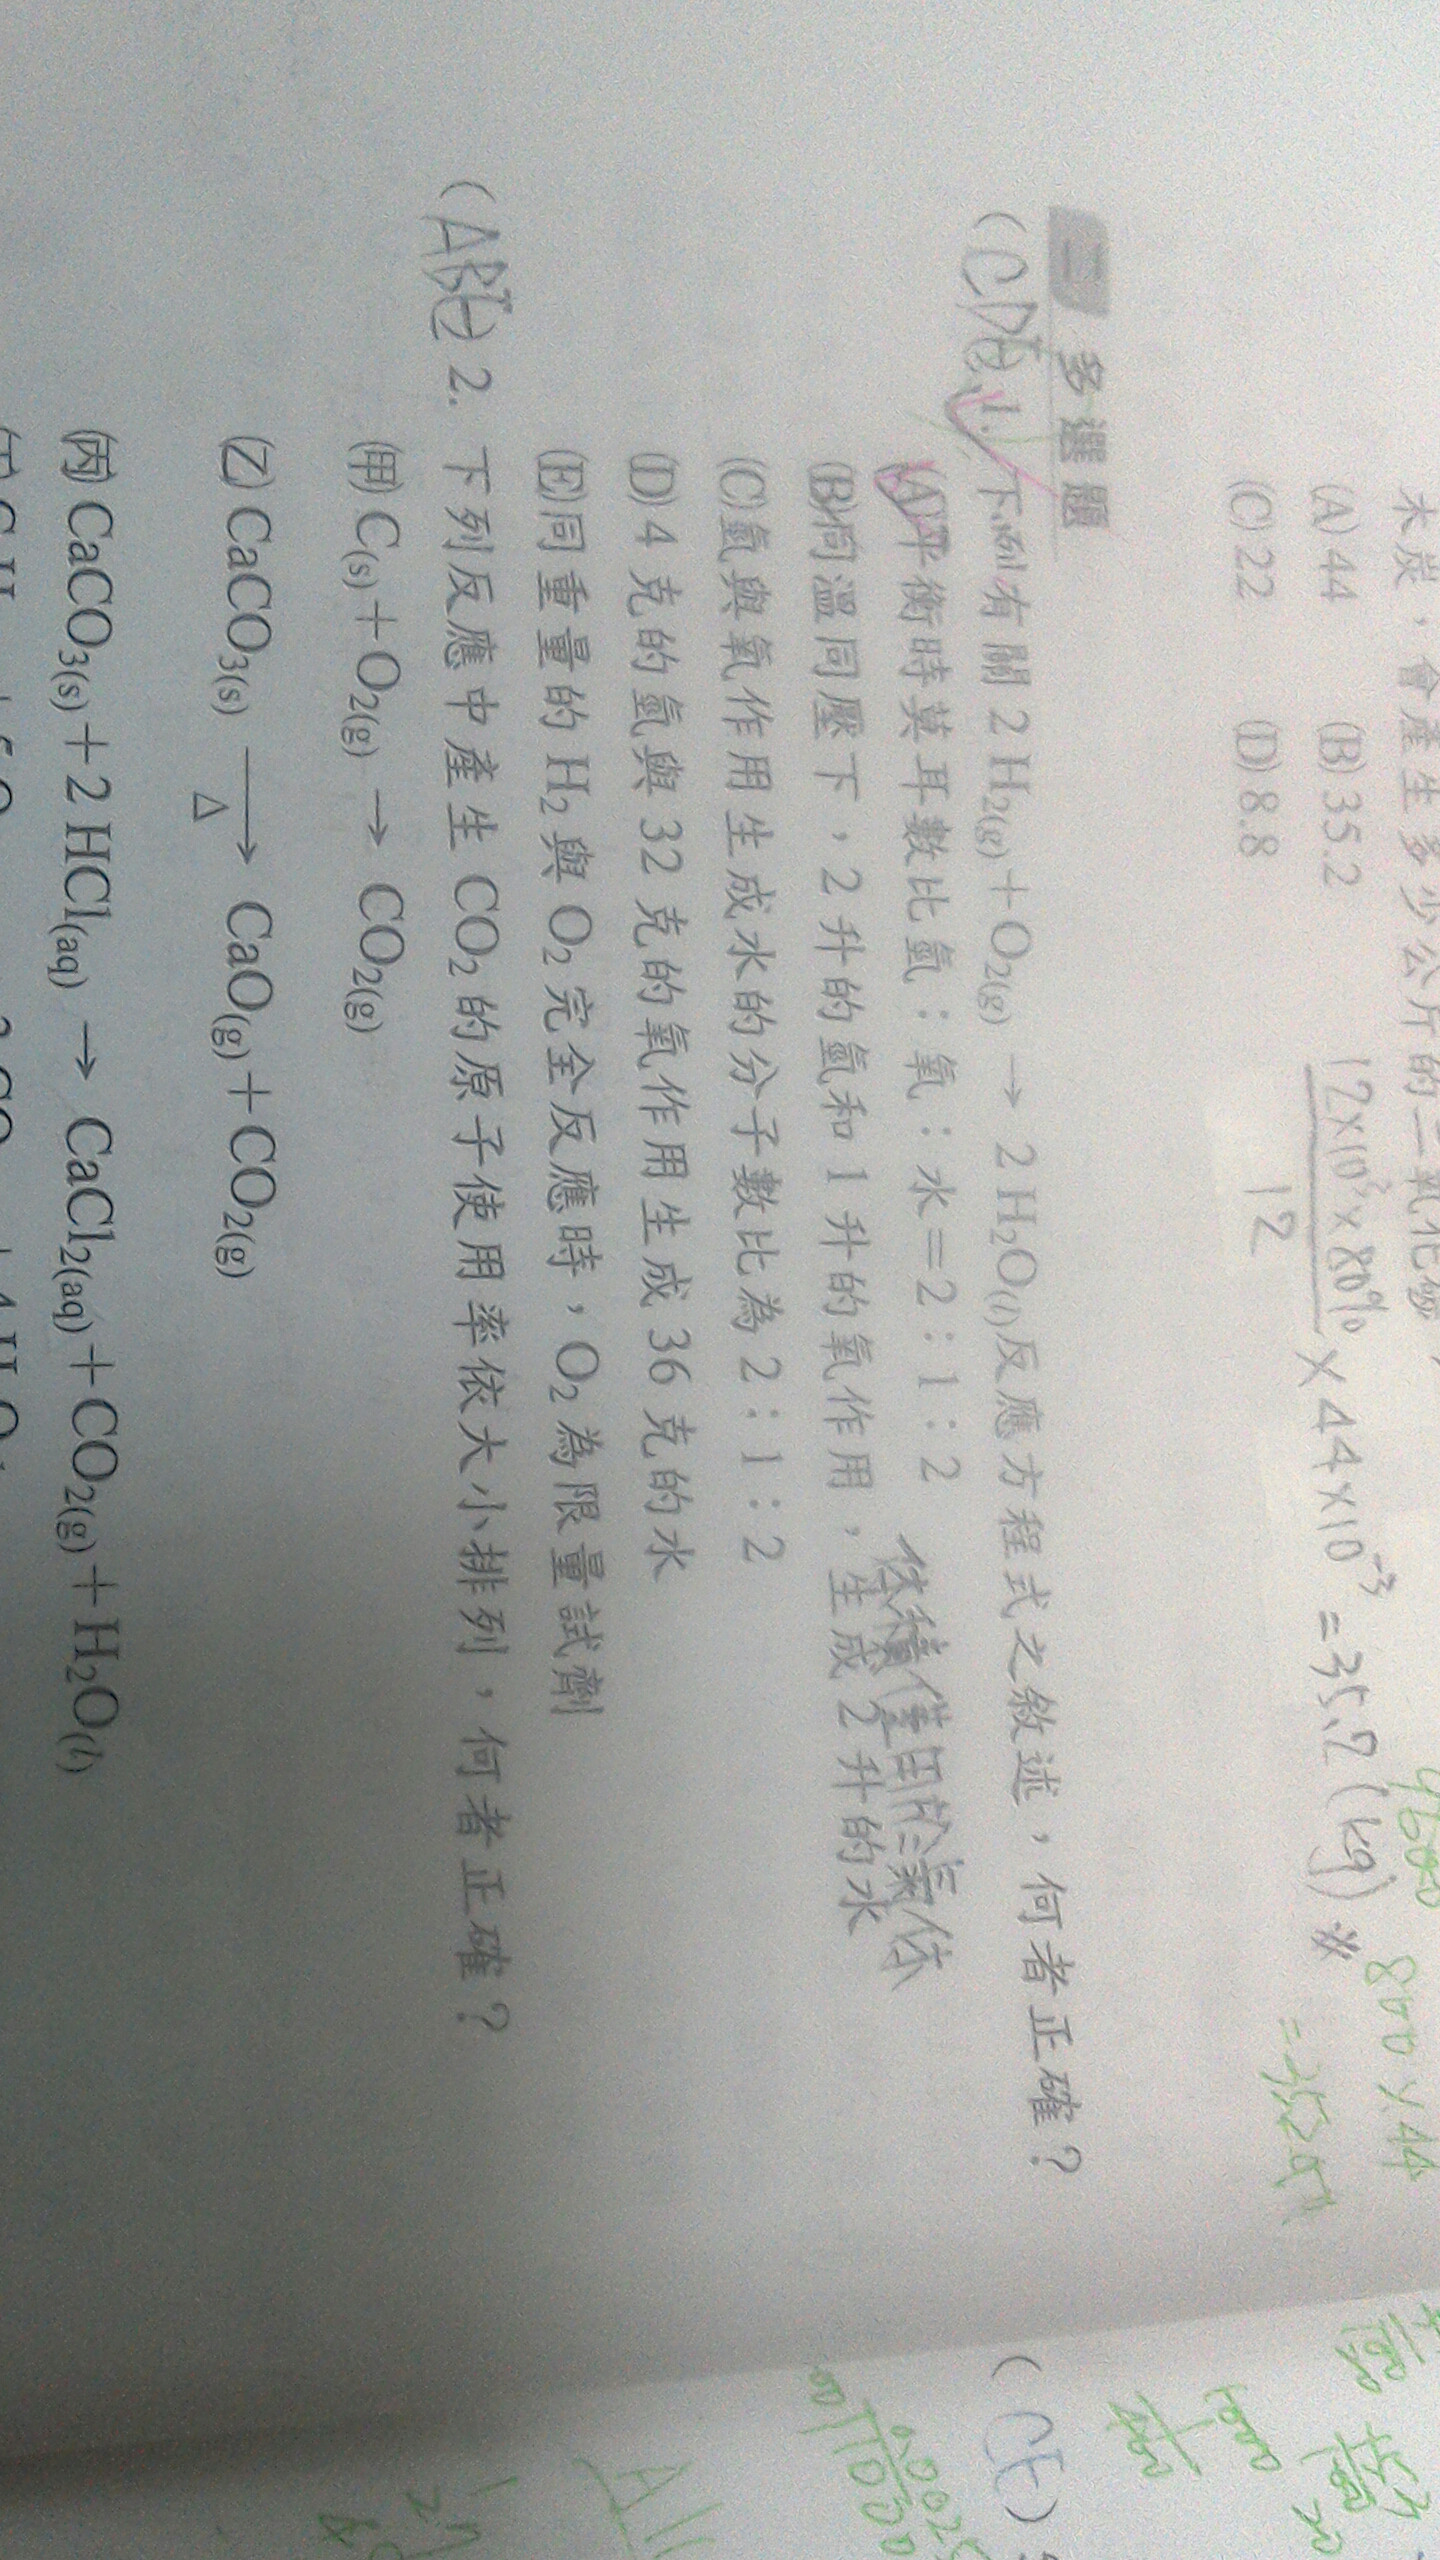 木炭，會產生多少公斤的二氧化碳，
(A) 44 (B) 35.2
(C) 22 (D) 8.8
12×10³×80%
12
×44×10⁻³=35.2(kg)※
800×44
二 多選題
(CDE)1. 下列有關 2 H₂(g)+O₂(g) → 2 H₂O(l)反應方程式之敘述，何者正確？
(A)平衡時莫耳數比氫：氧：水＝2：1：2
体積僅用於氣体
(B)同溫同壓下，2 升的氫和 1 升的氧作用，生成 2 升的水
(C)氫與氧作用生成水的分子數比為 2：1：2
(D) 4 克的氫與 32 克的氧作用生成 36 克的水
(E)同重量的 H₂ 與 O₂ 完全反應時，O₂ 為限量試劑
(ABE) 2. 下列反應中產生 CO₂ 的原子使用率依大小排列，何者正確？
(甲) C(s)+O₂(g) → CO₂(g)
(乙) CaCO₃(s) ⟶ CaO(g)+CO₂(g)
△
(丙) CaCO₃(s)+2 HCl(aq) → CaCl₂(aq)+CO₂(g)+H₂O(l)
(CE)